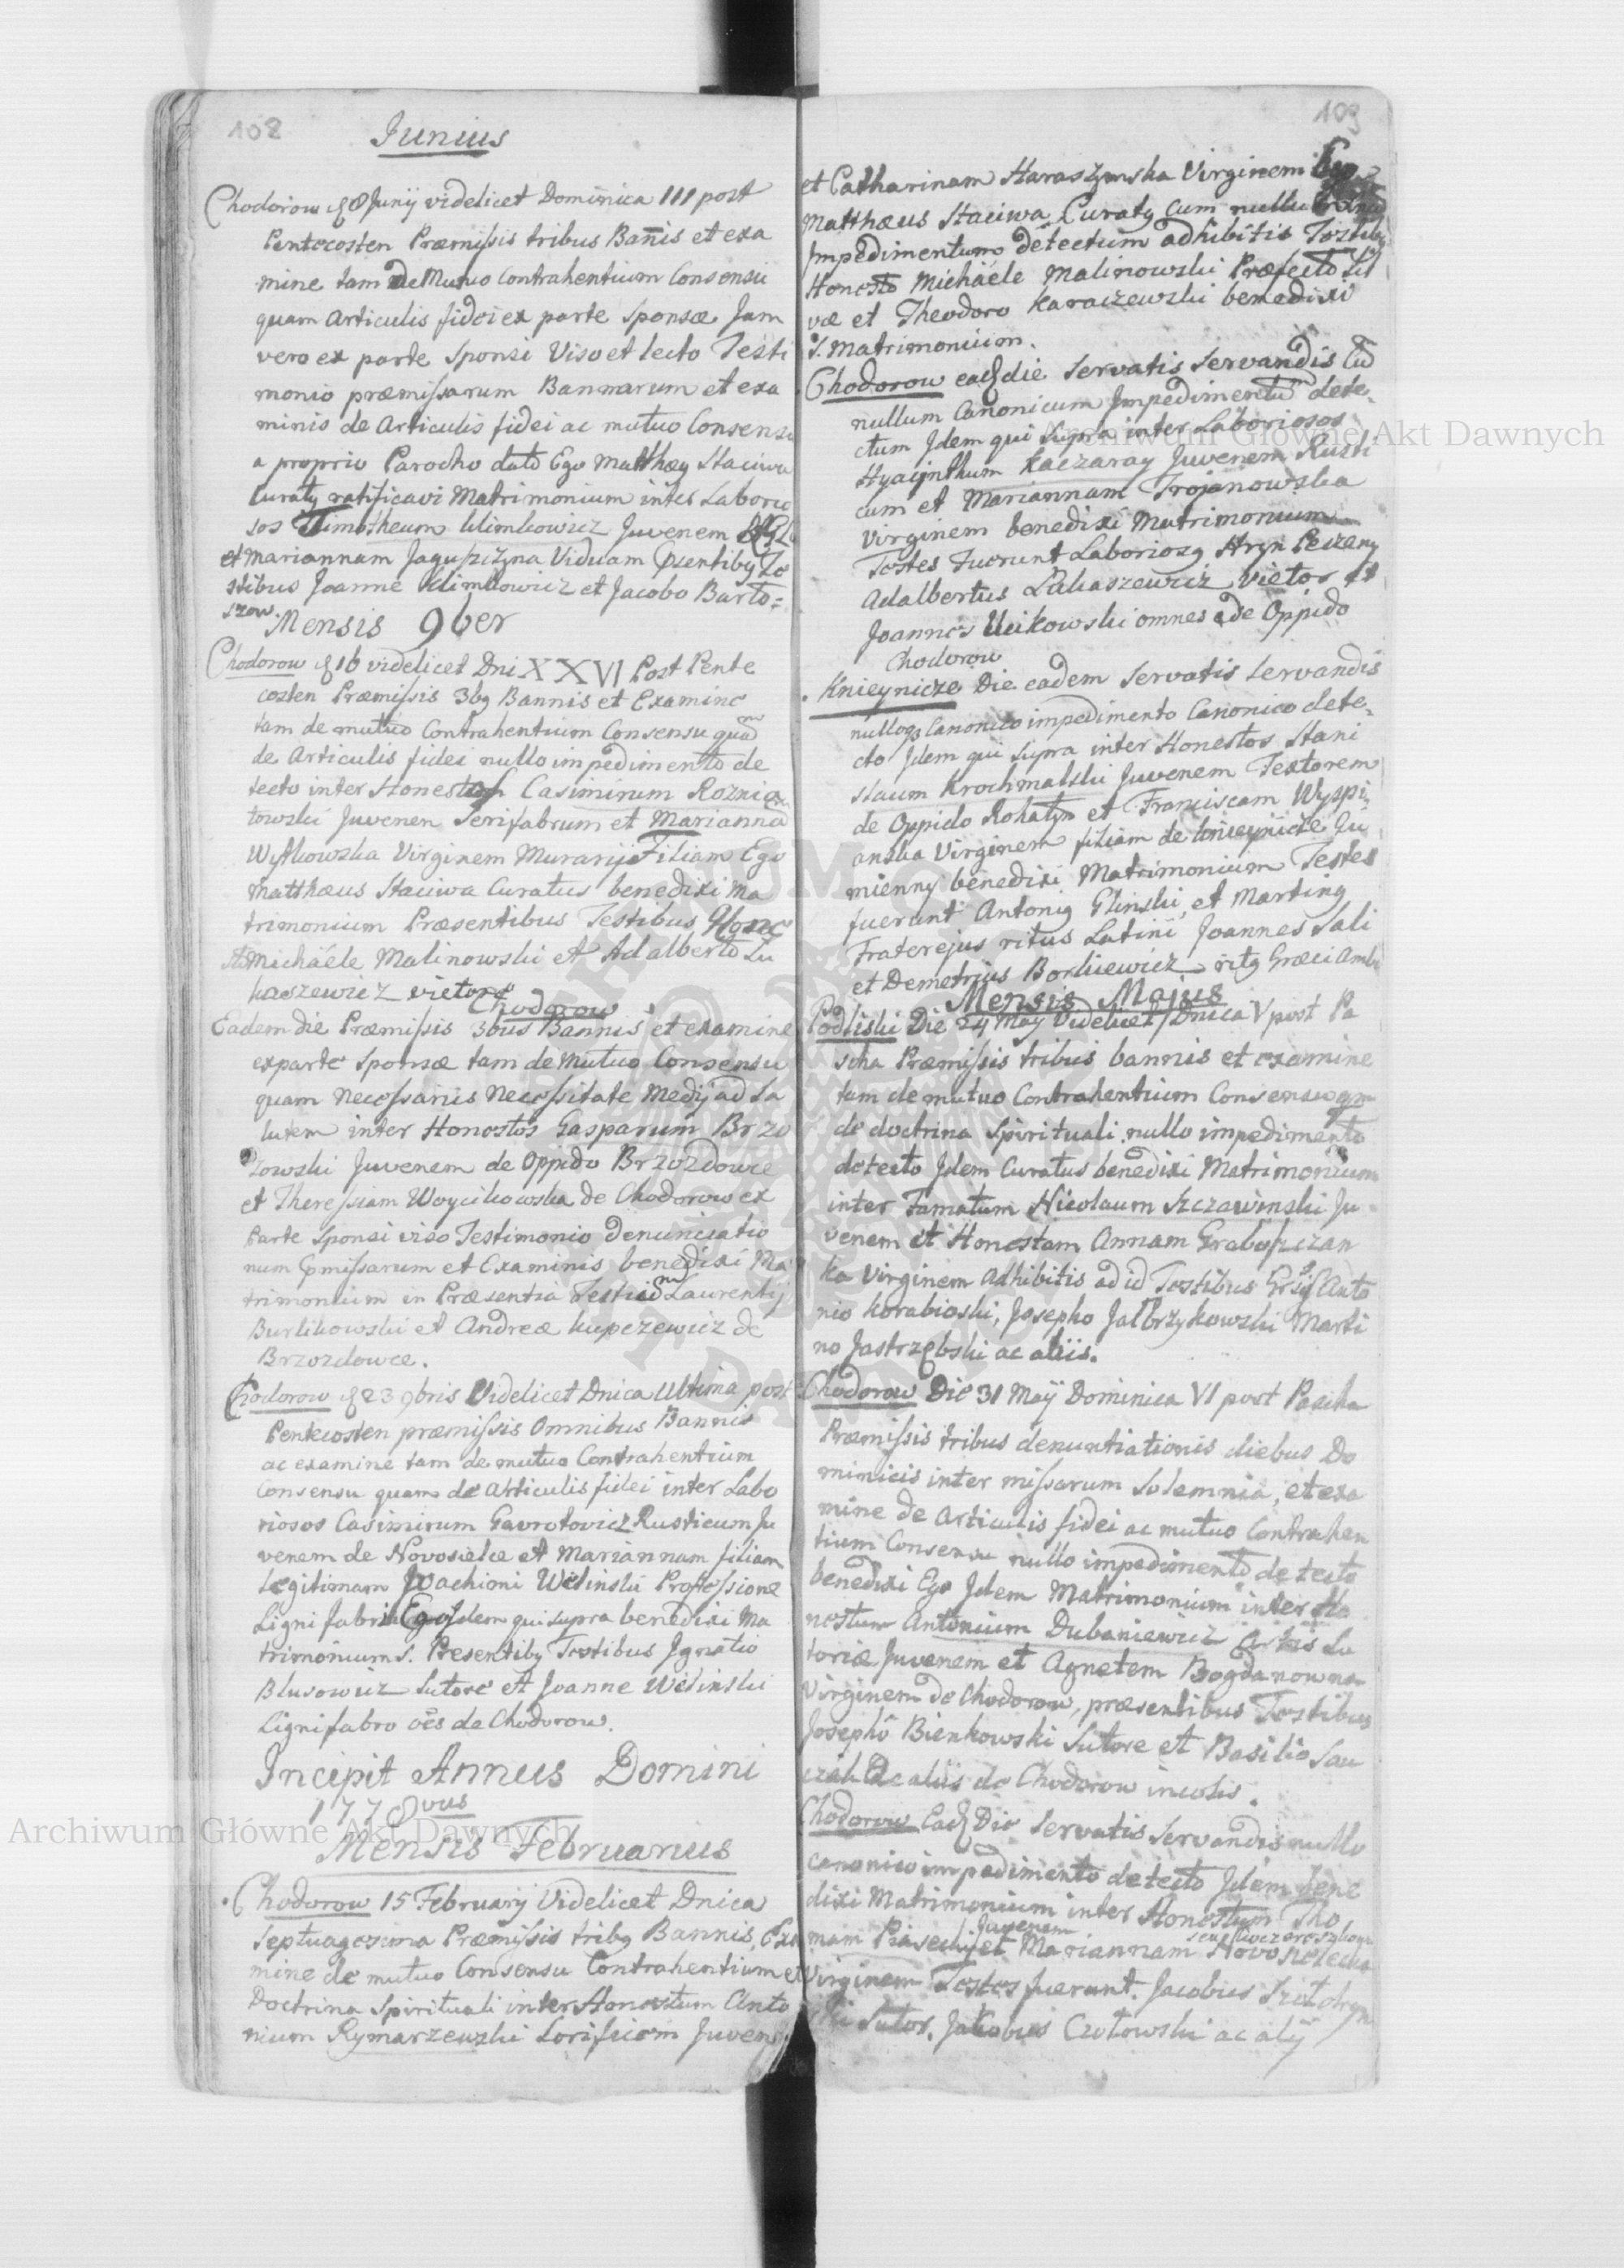 108
Junius
Chodorow 8 Junij videlicet Dominica III post
Pentecosten Præmissis tribus Bannis et exa
mine tam de Mutuo Contrahentium Consensu
quam Articulis fidei ex parte Sponsæ Jam
vero ex parte Sponsi Viso et lecto Testi
monio præmissarum Bannarum et exa
minis de Articulis fidei ac mutuo Consensu
a proprio Parocho dato Ego Matthæy Staciwa
Curaty ratificavi Matrimonium inter Laborio
sos Timotheum Klimkowicz Juvenem
et Mariannam Jaguszczyna Viduam Psentiby Te
stibus Joanne Klimkowicz et Jacobo Barto=
szow.
Mensis 9ber
Chodorow 16 videlicet Dni XXVI Post Pente
costen Præmissis 3bg Bannis et Examine
tam de mutuo Contrahentium Consensu quam
de Articulis fidei nullo impedimento de
tecto inter Honestos Casimirum Roznia
towski Juvenem Serifabrum et Marianna
Wytkowska Virginem Murarij Filiam Ego
Matthæus Staciwa Curatus benedixi Ma
trimonium Præsentibus Testibus Hone
sto Michaele Malinowski et Adalberto Lu
kaszewicz vietore
Chodorow
Eadem die Præmissis 3bus Bannis et examine
ex parte Sponsæ tam de Mutuo Consensu
quam Necessariis Necessitate Medij ad Sa
lutem inter Honestos Gasparum Brzo
zowski Juvenem de Oppido Brzozdowce
et Theressiam Woycikowska de Chodorow ex
Parte Sponsi viso Testimonio denunciatio
num Pmissarum et Examinis benedixi Ma
trimonium in Præsentia Testium Laurentij
Burlikowski et Andreæ Kupczewicz de
Brzozdowce.
Chodorow 23 9bris Videlicet Dnica Ultima post
Pentecosten præmissis Omnibus Bannis
ac examine tam de mutuo Contrahentium
Consensu quam de Articulis fidei inter Labo
riosos Casimirum Gawrotowicz Rusticum Ju
venem de Novosielce et Mariannam filiam
Legitimam Joachioni Welinski Professione
Ligni fabri Ego Idem qui supra benedixi Ma
trimonium S. Presentiby Testibus Ignatio
Blusowicz Sutore et Joanne Welinski
Lignifabro oes de Chodorow.
Incipit Annus Domini
1778vus
Mensis Februarius
Chodorow 15 Februarij Videlicet Dnica
Septuagesima Præmissis tribg Bannis, Exa
mine de mutuo Consensu Contrahentium et
Doctrina Spirituali inter Honestum Anto
nium Rymarzewski Lorificem Juvenem
109
et Catharinam Haraszymska Virginem Ego
Matthæus Staciwa Curaty Cum nullum
Impedimentum detectum adhibitis Testiby
Honesto Michaele Malinowski Præfecto Sil
væ et Theodoro Karaczewski benedixi
S. Matrimonium.
Chodorow eadem die Servatis Servandis Cu
nullum Canonicum Impedimentu dete=
ctum Idem qui Supra inter Laboriosos
Hyacynthum Kaczaray Juvenem Rusti
cum et Mariannam Trojanowska
Virginem benedixi Matrimonium
Testes Fuerunt Laboriosy Hryn Peczeny
Adalbertus Lukaszewicz Vietor et
Joannes Uikowski omnes de Oppido
Chodorow
Knieynicze Die eadem Servatis Servandis
nulloq Canonico impedimento Canonico dete=
cto Idem qui Supra inter Honestos Stani
slaum Krochmalski Juvenem Textorem
de Oppido Rohatyn et Franciscam Wyspi
anska Virginem filiam de Knieynicze Ju
mienny benedixi Matrimonium Testes
fuerunt Antonig Glinski, et Marting
Frater ejus ritus Latini Joannes Sali
et Demetrius Borkiewicz ritg Græci Ambo
Mensis Majus
Podliski Die 24 Maij Videlicet Dnica V post Pa
scha Præmissis tribus bannis et examine
tam de mutuo Contrahentium Consensu qm
de doctrina Spirituali nullo impedimento
detecto Idem Curatus benedixi Matrimonium
inter Famatum Nicolaum Szczawinski Ju
venem et Honestam Annam Grabszczan
ka Virginem Adhibitis ad id Testibus Gsis Anto
nio Korabioski, Josepho Jalbrzykowski Marti
no Jastrzębski ac aliis.
Chodorow Die 31 Maij Dominica VI post Pascha
Præmissis tribus denuntiationis diebus Do
minicis inter missarum Solemnia, et exa
mine de Articulis fidei ac mutuo Contrahen
tium Consensu nullo impedimento detecto
benedixi Ego Idem Matrimonium inter Ho
nestum Antonium Dubaniewicz Artis Su
toriæ Juvenem et Agnetem Bogdanowna
Virginem de Chodorow, præsentibus Testibus
Josepho Bienkowski Sutore et Basilio Sau
czak Ac aliis de Chodorow incolis.
Chodorow Eadem Die Servatis Servandis nullo
canonico impedimento detecto Idem bene
dixi Matrimonium inter Honestum Tho
mam Piasecki Juvenem et Mariannam Novosielecka
Virginem Testes fuerunt. Jacobus
Sutor. Jakobus Czołowski ac alij
Archiwum Główne Akt Dawnych
Archiwum Główne Akt Dawnych